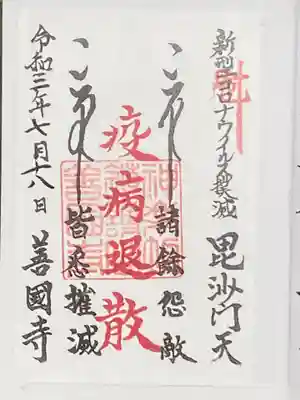 新型コロナウイルス撲滅
毘沙門天
諸餘怨敵
疫病退散
皆悉摧滅
令和三年七月十八日
善國寺